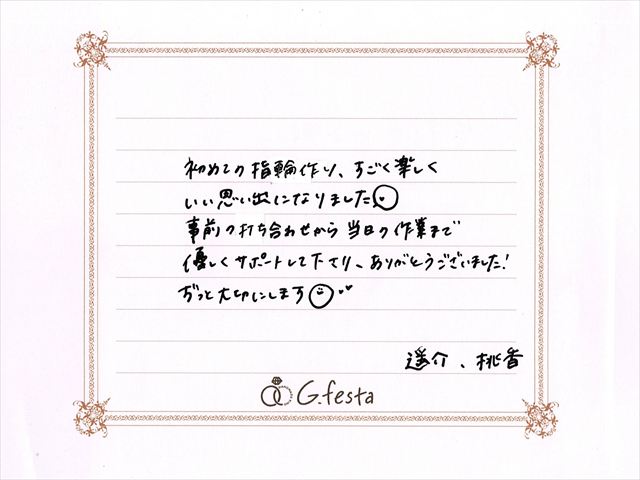 初めての指輪作り、すごく楽しく
いい思い出になりました
事前の打ち合わせから当日の作業まで
優しくサポートして下さり、ありがとうございました!
ずっと大切にします
遥介、桃香
G.festa